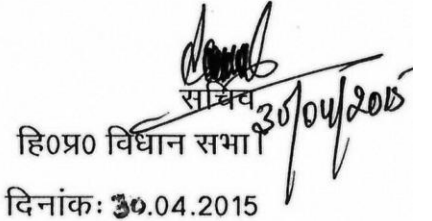 सचिव
30/04/2015
हि०प्र० विधान सभा।
दिनांकः 30.04.2015